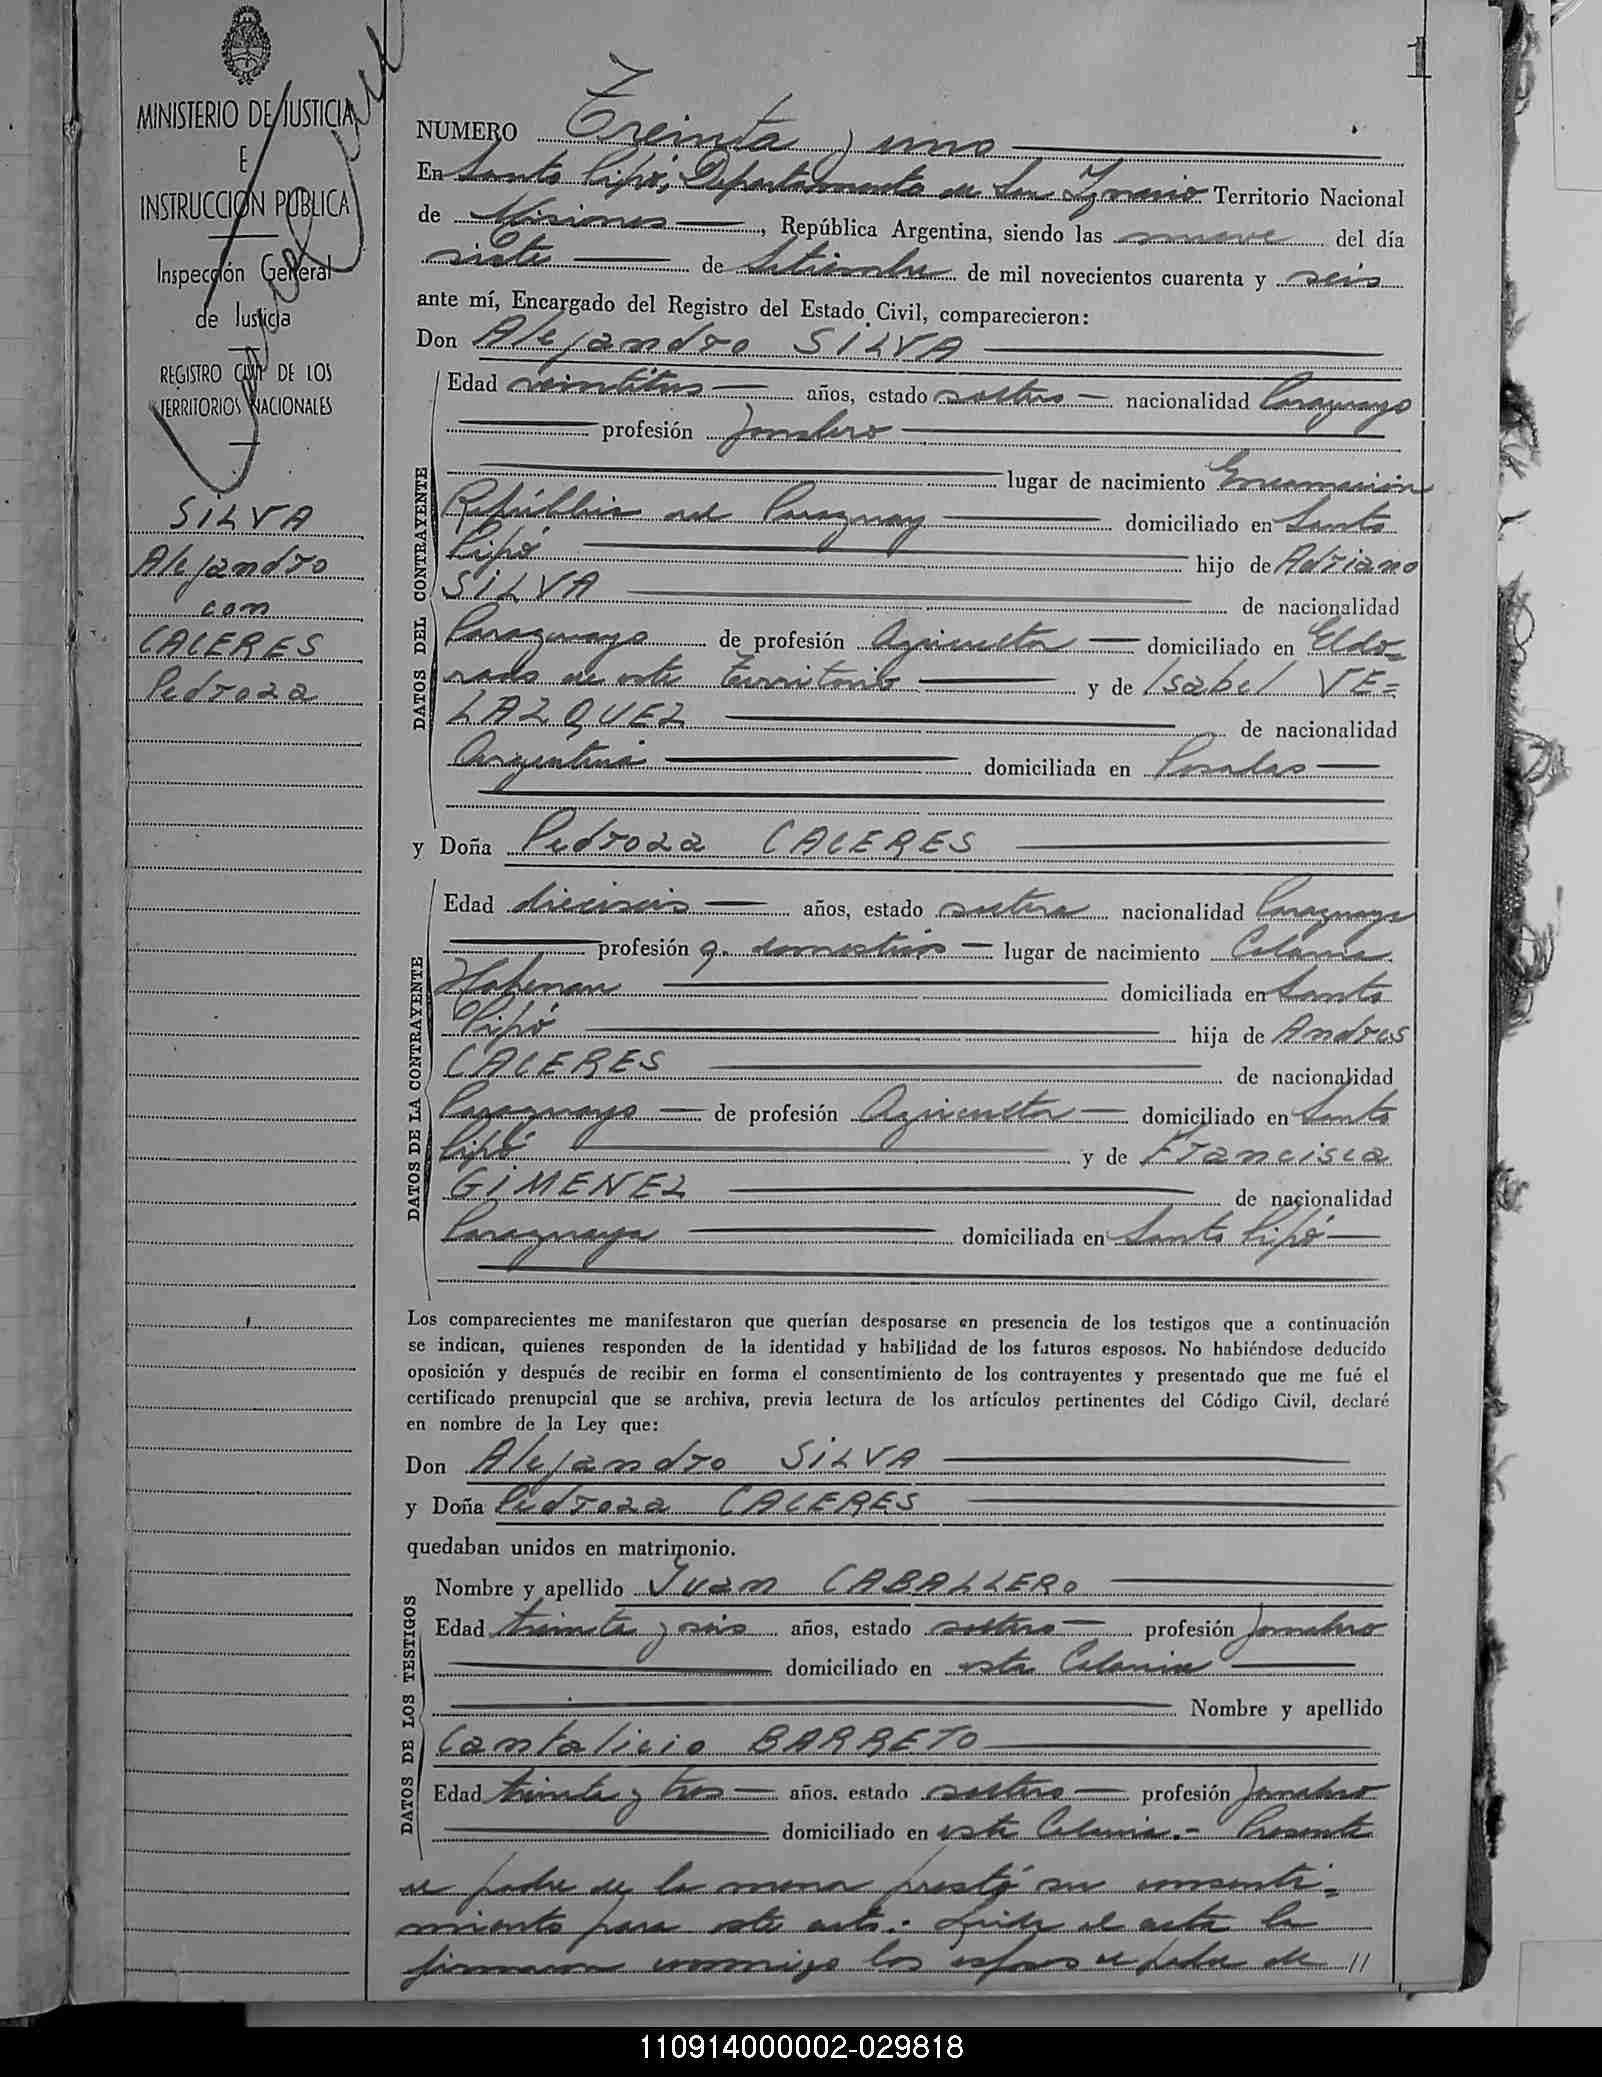 1
MINISTERIO DE JUSTICIA
E
INSTRUCCIÓN PUBLICA
Inspección General
de Justicia
REGISTRO CIVIL DE LOS
TERRITORIOS NACIONALES
SILVA
Alejandro
con
CACERES
Pedroza
NUMERO Treinta y uno
En Santo Pipó, Departamento de San Ignacio Territorio Nacional
de Misiones, República Argentina, siendo las nueve del día
siete de Setiembre de mil novecientos cuarenta y seis
ante mí, Encargado del Registro del Estado Civil, comparecieron:
Don Alejandro SILVA
DATOS DEL CONTRAYENTE
Edad años, estado soltero nacionalidad Paraguayo
profesión Jornalero
lugar de nacimiento Encarnación
República del Paraguay domiciliado en Santo
Pipó hijo de Adriano
SILVA de nacionalidad
Paraguayo de profesión Agricultor domiciliado en Eldo=
rado de este Territorio y de Isabel VE=
LAZQUEZ de nacionalidad
Argentina domiciliada en Posadas
y Doña Pedroza CACERES
DATOS DE LA CONTRAYENTE
Edad dieciseis años, estado soltera nacionalidad Paraguaya
profesión q. domesticos lugar de nacimiento Colonia
Hohenau domiciliada en Santo
Pipó hija de Andres
CACERES de nacionalidad
Paraguayo de profesión Agricultor domiciliado en Santo
Pipó y de Francisca
GIMENEZ de nacionalidad
Paraguaya domiciliada en Santo Pipó
Los comparecientes me manifestaron que querían desposarse en presencia de los testigos que a continuación
se indican, quienes responden de la identidad y habilidad de los futuros esposos. No habiéndose deducido
oposición y después de recibir en forma el consentimiento de los contrayentes y presentado que me fué el
certificado prenupcial que se archiva, previa lectura de los artículos pertinentes del Código Civil, declaré
en nombre de la Ley que:
Don Alejandro SILVA
y Doña Pedroza CACERES
quedaban unidos en matrimonio.
DATOS DE LOS TESTIGOS
Nombre y apellido Juan CABALLERO
Edad treinta y seis años, estado soltero profesión Jornalero
domiciliado en esta Colonia
Nombre y apellido
Cantalicio BARRETO
Edad treinta y tres años. estado soltero profesión Jornalero
domiciliado en esta Colonia.- Presente
el padre de la menor prestó su consenti=
miento para este acto.- Leida el acta la
firmaron conmigo los esposos el padre de //
110914000002-029818